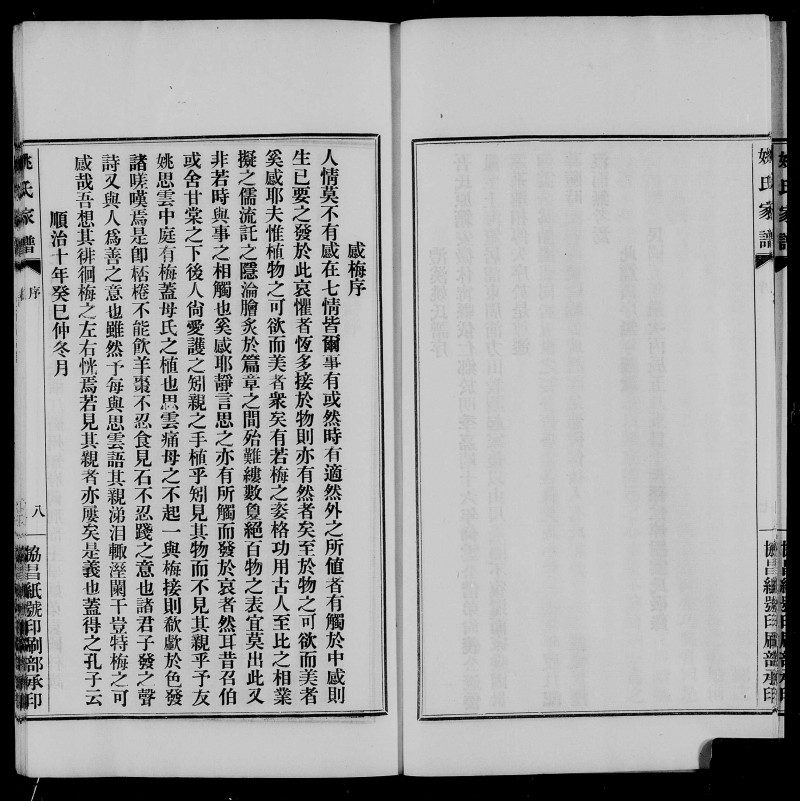 姚氏家譜
協昌紙號印刷部承印
感梅序
人情莫不有感在七情皆爾事有或然時有適然外之所値者有觸於中感則
生已要之發於此哀懼者恆多接於物則亦有然者矣至於物之可欲而美者
奚感耶夫惟植物之可欲而美者衆矣有若梅之姿格功用古人至比之相業
擬之儒流託之隱淪膾炙於篇章之間殆難縷數敻絕百物之表宜莫出此又
非若時與事之相觸也奚感耶靜言思之亦有所觸而發於哀者然耳昔召伯
或舍甘棠之下後人尙愛護之矧親之手植乎矧見其物而不見其親乎予友
姚思雲中庭有梅蓋母氏之植也思雲痛母之不起一與梅接則欷歔於色發
諸嗟嘆焉是卽桮棬不能飮羊棗不忍食見石不忍踐之意也諸君子發之聲
詩又與人爲善之意也雖然予每與思雲語其親涕泪輙溼闌干豈特梅之可
感哉吾想其徘徊梅之左右恍焉若見其親者亦屢矣是義也蓋得之孔子云
順治十年癸巳仲冬月
姚氏家譜
序
八
協昌紙號印刷部承印